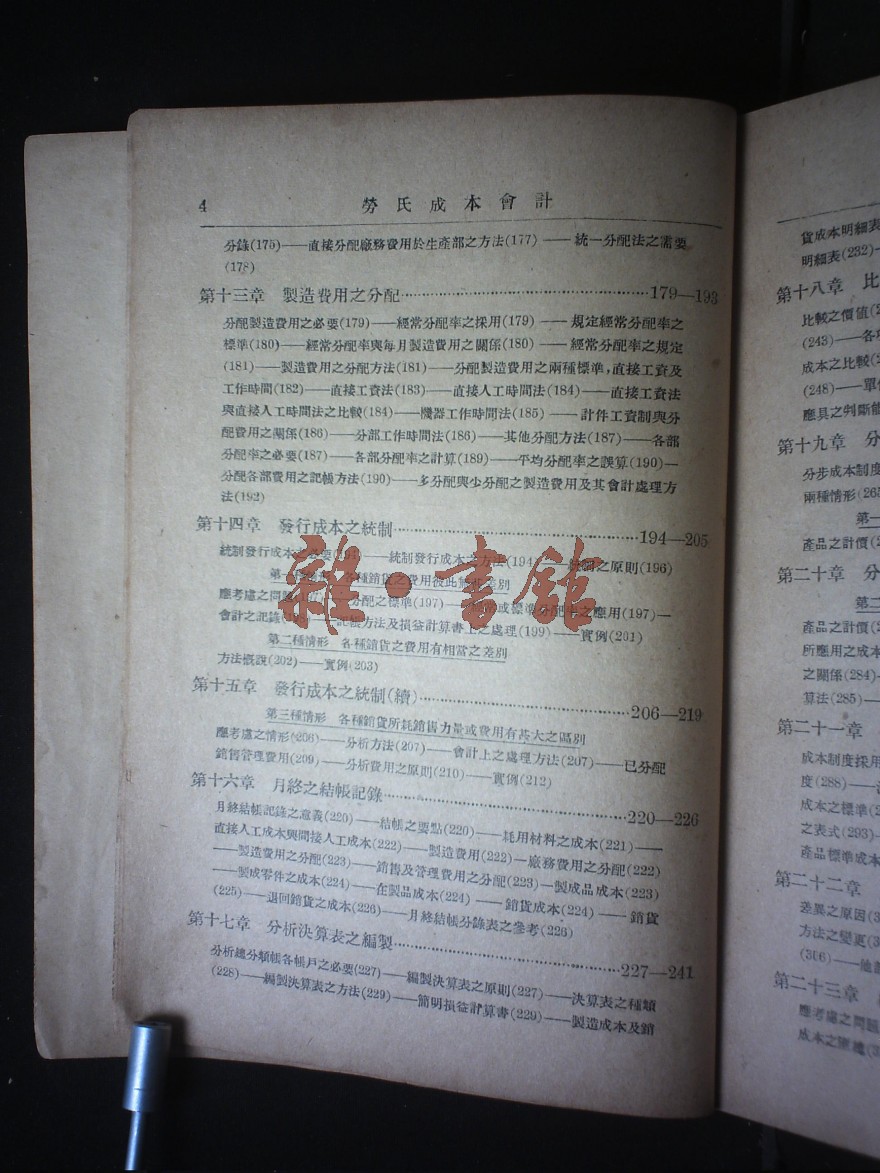 4
勞氏成本會計
分錄(175)——直接分配廠務費用於生產部之方法(177)——統一分配法之需要
(178)
第十三章 製造費用之分配…179—193
分配製造費用之必要(179)——經常分配率之採用(179)——規定經常分配率之
標準(180)——經常分配率與每月製造費用之關係(180)——經常分配率之規定
(181)——製造費用之分配方法(181)——分配製造費用之兩種標準,直接工資及
工作時間(182)——直接工資法(183)——直接人工時間法(184)——直接工資法
與直接人工時間法之比較(184)——機器工作時間法(185)——計件工資制與分
配費用之關係(186)——分部工作時間法(186)——其他分配方法(187)——各部
分配率之必要(187)——各部分配率之計算(189)——平均分配率之誤算(190)—
分配各部費用之記帳方法(190)——多分配與少分配之製造費用及其會計處理方
法(192)
第十四章 發行成本之統制…194—205
統制發行成本之必要(194)——統制發行成本之方法(194)——統制之原則(196)
第一種情形 各種銷貨之費用彼此無甚差別
應考慮之問題(197)——分配之標準(197)——或標準分配率之應用(197)—
會計之記錄——記帳方法及損益計算書上之處理(199)——實例(201)
第二種情形 各種銷貨之費用有相當之差別
方法概說(202)——實例(203)
第十五章 發行成本之統制(續)…206—219
第三種情形 各種銷貨所耗銷售力量或費用有甚大之區別
應考慮之情形(206)——分析方法(207)——會計上之處理方法(207)——已分配
銷售管理費用(209)——分析費用之原則(210)——實例(212)
第十六章 月終之結帳記錄…220—226
月終結帳記錄之意義(220)——結帳之要點(220)——耗用材料之成本(221)——
直接人工成本與間接人工成本(222)——製造費用(222)——廠務費用之分配(222)
——製造費用之分配(223)——銷售及管理費用之分配(223)—製成品成本(223)
——製成零件之成本(224)——在製品成本(224)——銷貨成本(224)——銷貨
(225)——退回銷貨之成本(226)——月終結帳分錄表之參考(226)
第十七章 分析決算表之編製…227—241
分析總分類帳各帳戶之必要(227)——編製決算表之原則(227)——決算表之種類
(228)——編製決算表之方法(229)——簡明損益計算書(229)——製造成本及銷
雜·書館
貨成本明細表
明細表(232)—
第十八章 比
比較之價值
(243)——各
成本之比較
(248)——單
應具之判斷能
第十九章 分
分步成本制度
兩種情形(265
第一
產品之計價
第二十章 分
第二
產品之計價
所應用之成本
之關係(284)—
算法(285)——
第二十一章
成本制度採用
度(288)——
成本之標準
之表式(293)—
產品標準成本
第二十二章
差異之原因
方法之變更
(306)——
第二十三章
應考慮之問題
成本之匯總